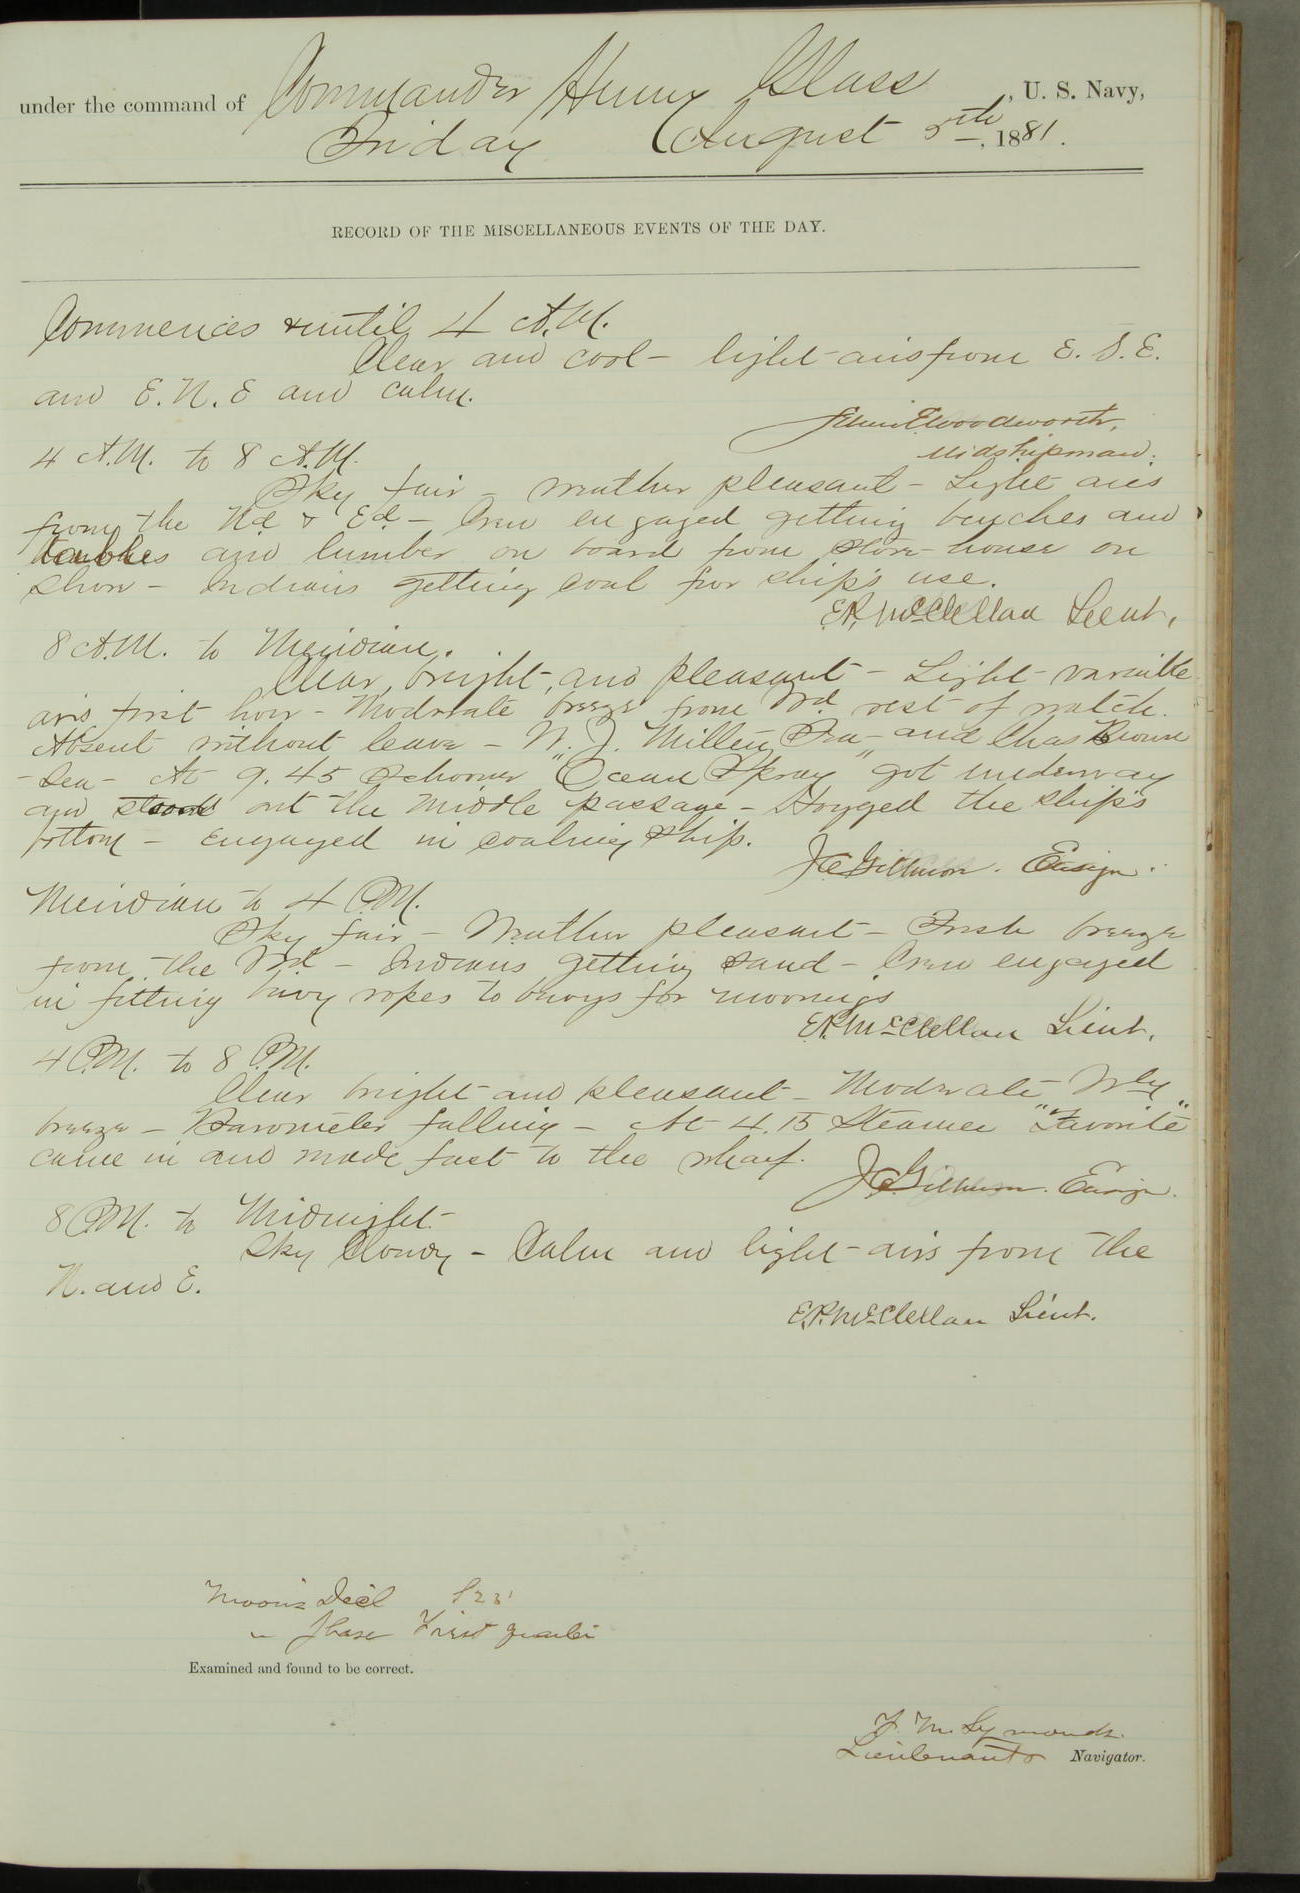 under the command of Commander Henry Glass, U. S. Navy,
Friday August 5th, 1881.
RECORD OF THE MISCELLANEOUS EVENTS OF THE DAY.
Commences & until 4 A.M.
Clear and cool - light airs from E. S. E.
and E. N. E and calm.
Woodworth,
Midshipman.
4 A.M. to 8 A.M.
Sky fair - weather pleasant - Light airs
from the Nd & Ed - Crew engaged getting benches and
tables and lumber on board from store-house on
shore - Indians getting coal for ship's use.
E.P. McClellan Lieut.
8 A.M. to Meridian.
Clear, bright, and pleasant - Light variable
airs first hour - Moderate breeze from Wd. rest of watch.
Absent without leave - W. J. Miller, and Chas Brown
- Sea - At 9.45 Schooner "Ocean Spray" got underway
and stood out the middle passage - Hogged the ship's
bottom - Engaged in coaling ship.
J C Gillmore. Ensign.
Meridian to 4 P.M.
Sky fair - Weather pleasant - Fresh breeze
from the Wd - Indians getting sand - Crew engaged
in fitting buoy ropes to buoys for moorings
E.P. McClellan Lieut.
4 P.M. to 8 P.M.
Clear bright and pleasant - Moderate Wly
breeze - Barometer falling - At 4.15 Steamer "Favorite"
came in and made fast to the wharf.
J C Gillmore. Ensign.
8 P.M. to Midnight -
Sky Cloudy - Calm and light airs from the
N. and E.
E.P. McClellan Lieut.
Moon's Decl
" Phase First quarter
Examined and found to be correct.
F. M. Symonds.
Lieutenant & Navigator.